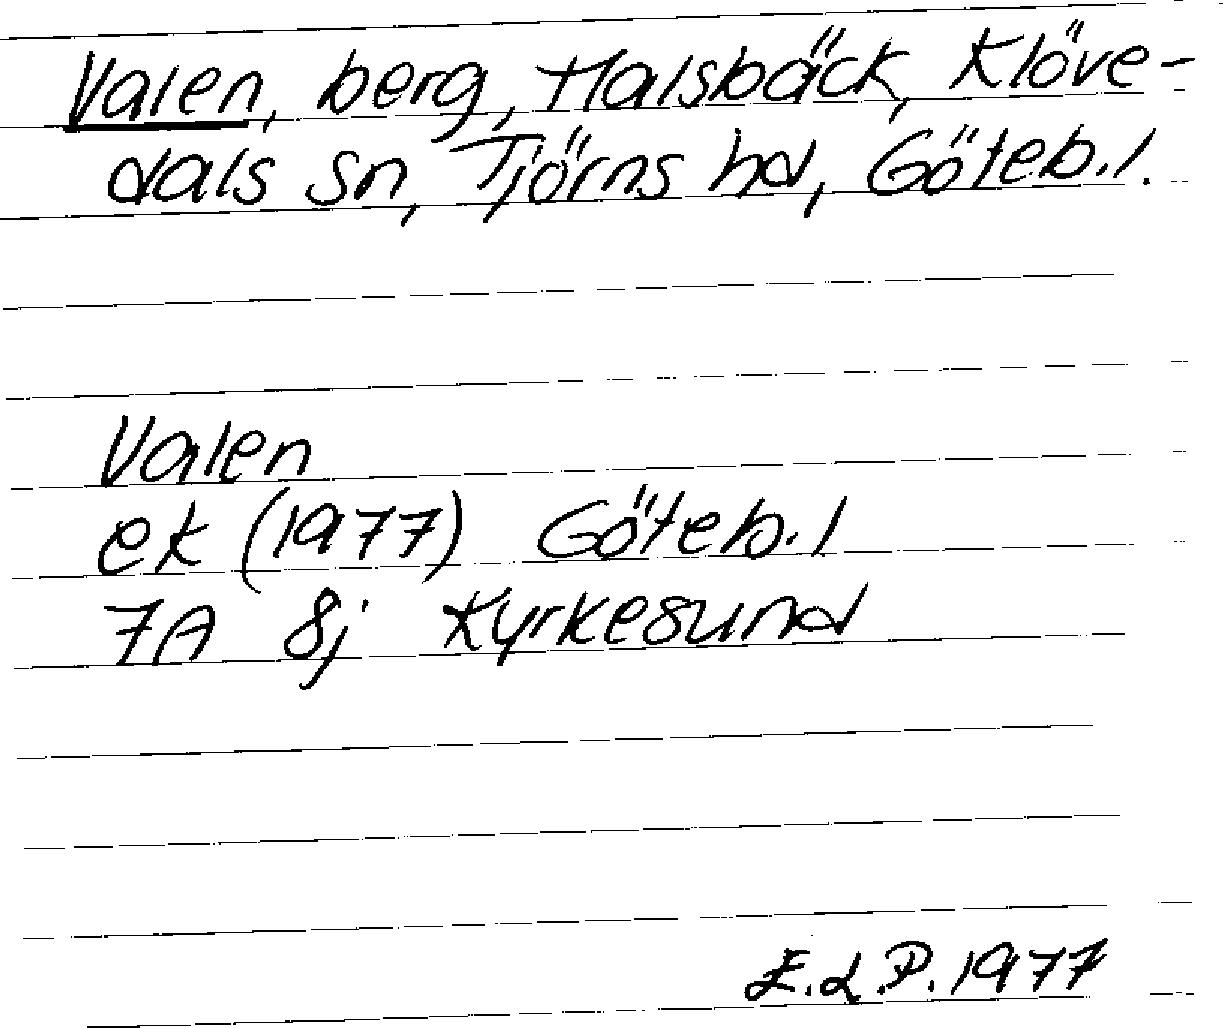 Valen, berg, Halsbäck, Klöve-
dals sn, Tjörns hd, Göteb.l.
Valen
ek (1977) Göteb.l
7A 8j Kyrkesund
E.L.P. 1977